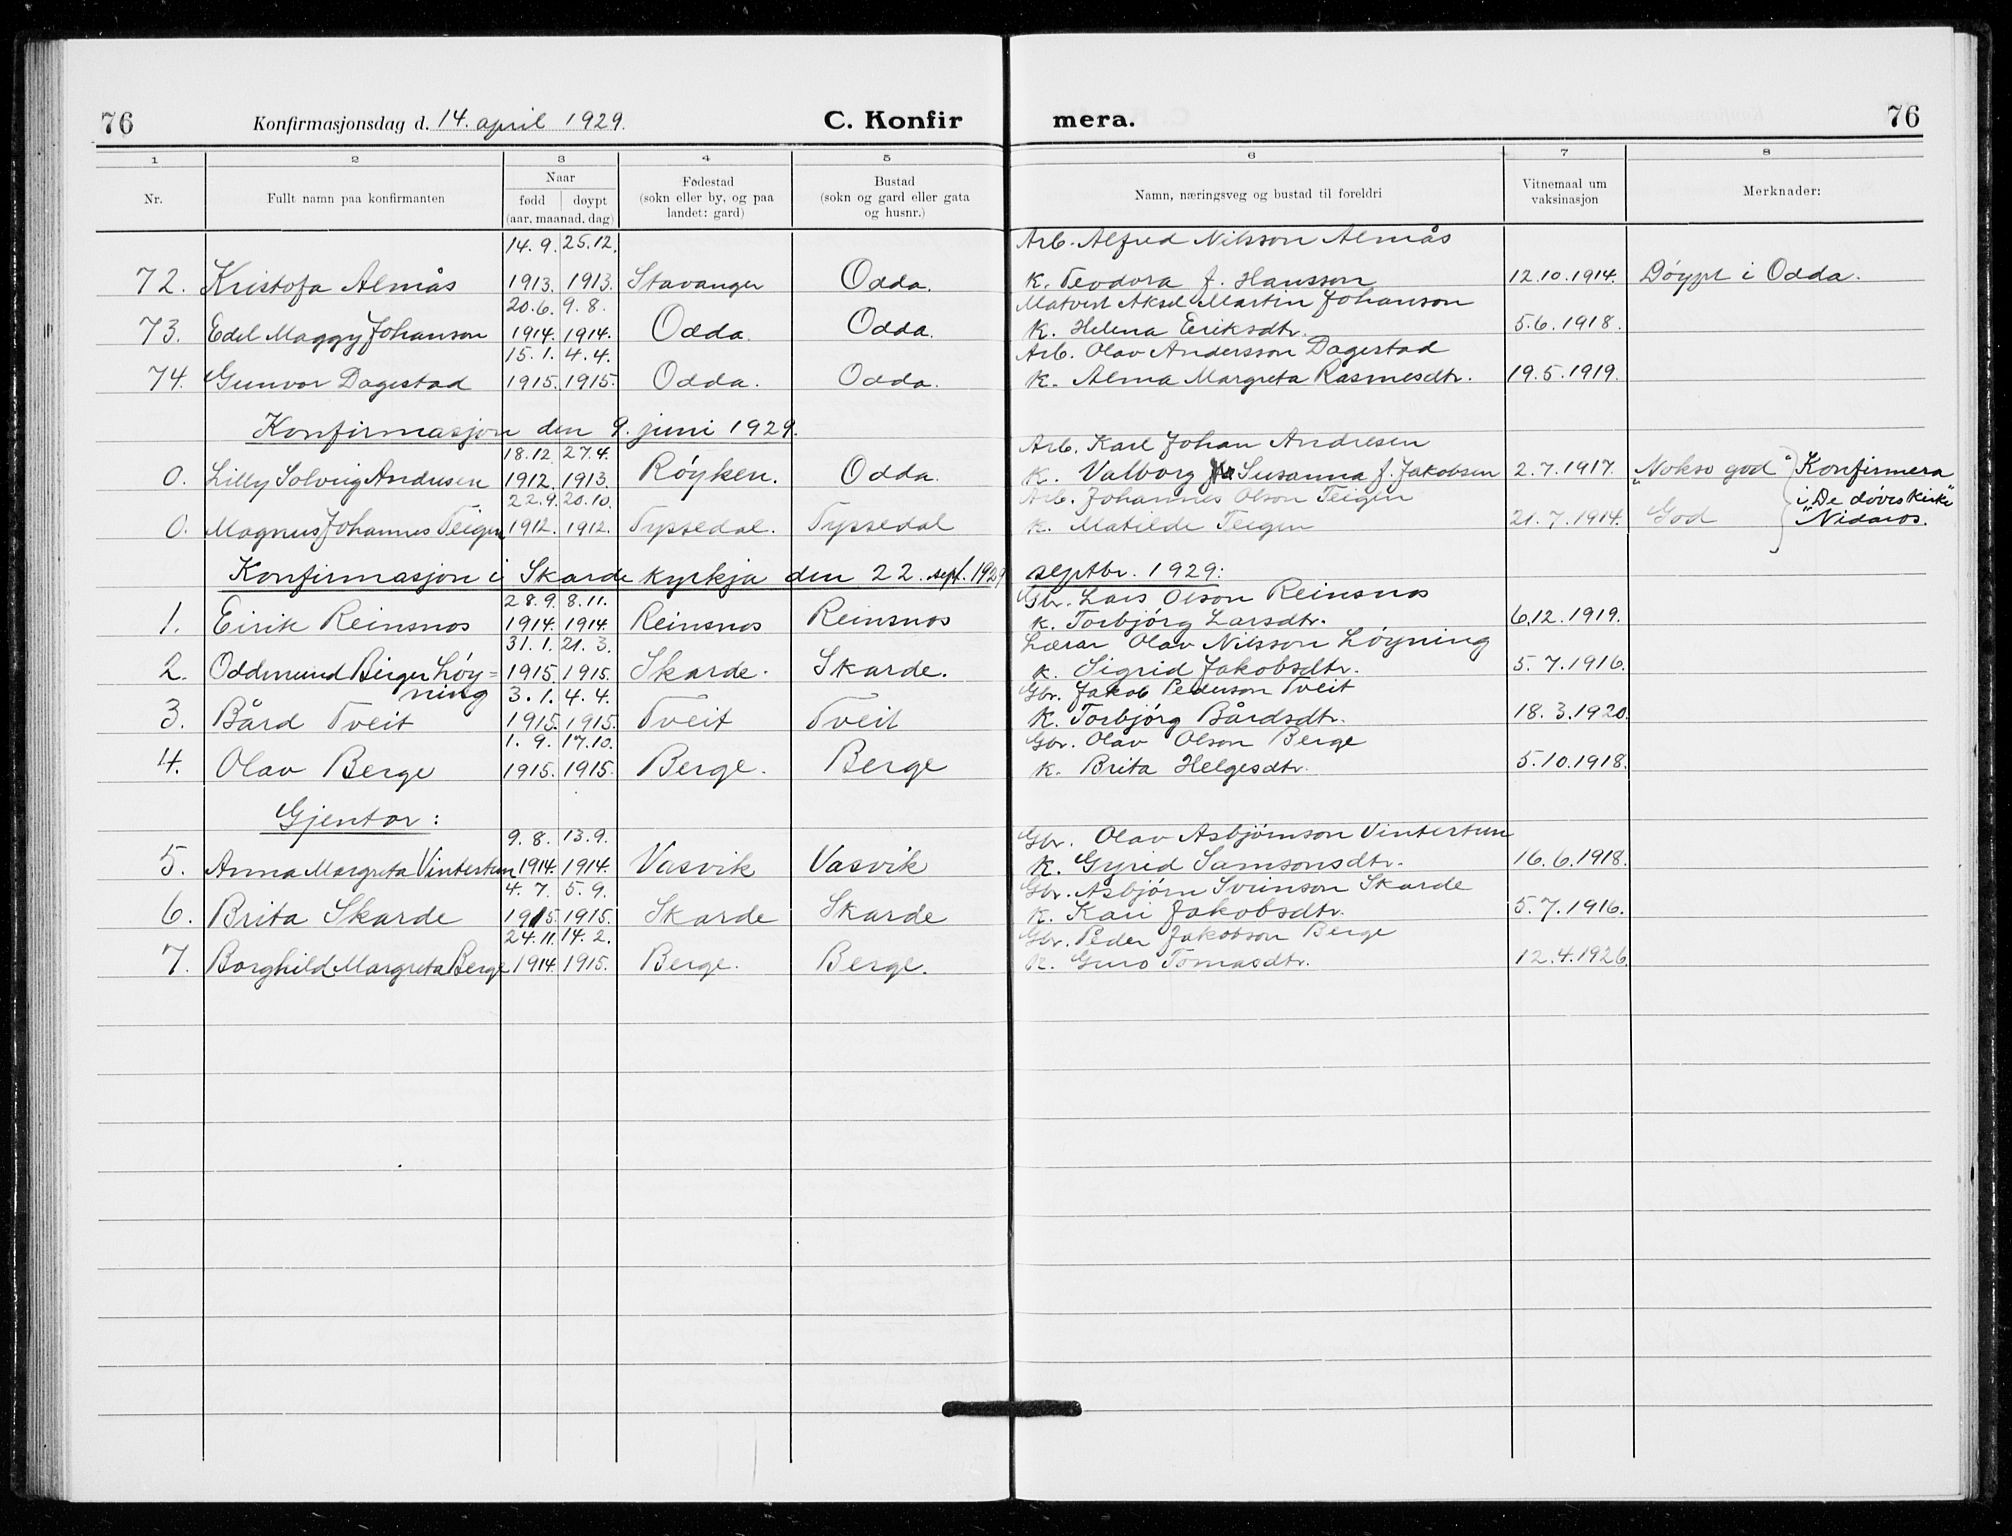 76 Konfirmasjonsdag d. 14. april 1929. C. Konfir mera. 76
1 2 3 4 5 6 7 8
Nr. Fullt namn paa konfirmanten Naar fødd døypt (aar, maanad, dag) Fødestad (sokn eller by, og paa landet: gard) Bustad (sokn og gard eller gata og husnr.) Namn, næringsveg og bustad til foreldri Vitnemaal um vaksinasjon Merknader:
14. 9. 25. 12. Arb. Alfred Nilsson Almås
72. Kristofa Almås 1913. 1913. Stavanger Odda. K. Teodora f. Hansson 12.10.1914. Døypt i Odda.
20.6. 9. 8. Matvert Aksel Martin Johanson
73. Edel Maggy Johanson 1914. 1914. Odda. Odda. K. Helena Eriksdtr. 5.6.1918.
15. 1. 4. 4. Arb. Olav Andersson Dagestad
74. Gunvor Dagestad 1915. 1915. Odda. Odda. K. Alma Margreta Rasmesdtr. 19.5.1919.
Konfirmasjon den 9. juni 1929.
18.12. 27.4. Arb. Karl Johan Andresen
0. Lilly Solveig Andresen 1912. 1913. Røyken. Odda. K. Valborg Susanna f. Jakobsen 2.7.1917. „Nokso god" Konfirmera
22.9. 20.10. Arb. Johannes Olson Teigen i „De døves kirke"
0. Magnus Johannes Teigen 1912. 1912. Tyssedal. Tyssedal K. Matilde Teigen 21.7.1914. God Nidaros.
Konfirmasjon i Skarde kyrkja den 22. sept. 1929 septbr. 1929:
28.9. 8.11. Gbr. Lars Olson Reinsnos
1. Eirik Reinsnos 1914. 1914. Reinsnos Reinsnos K. Torbjørg Larsdtr. 6.12.1919.
31. 1. 21. 3. Lærar Olav Nilsson Løyning
2. Oddmund Birger Løy= 1915. 1915. Skarde. Skarde. K. Sigrid Jakobsdtr. 5.7.1916.
ning 3. 1. 4. 4. Gbr. Jakob Pederson Tveit
3. Bård Tveit 1915. 1915. Tveit Tveit K. Torbjørg Bårdsdtr. 18.3.1920.
1. 9. 17.10. Gbr. Olav Olson Berge
4. Olav Berge 1915. 1915. Berge. Berge K. Brita Helgesdtr. 5.10.1918.
Gjentor:
9. 8. 13.9. Gbr. Olav Asbjørnson Vintertun
5. Anna Margreta Vintertun 1914. 1914. Vasvik Vasvik K. Gyrid Samsonsdtr. 16.6.1918.
4. 7. 5. 9. Gbr. Asbjørn Sveinson Skarde
6. Brita Skarde 1915. 1915. Skarde Skarde K. Kari Jakobsdtr. 5.7.1916.
24.11. 14. 2. Gbr. Peder Jakobson Berge
7. Borghild Margreta Berge 1914. 1915. Berge. Berge. K. Guro Tomasdtr. 12.4.1926.